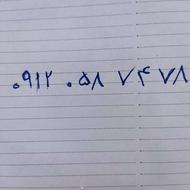 ۰۹۱۲ ۰۵۸ ۷۴۷۸